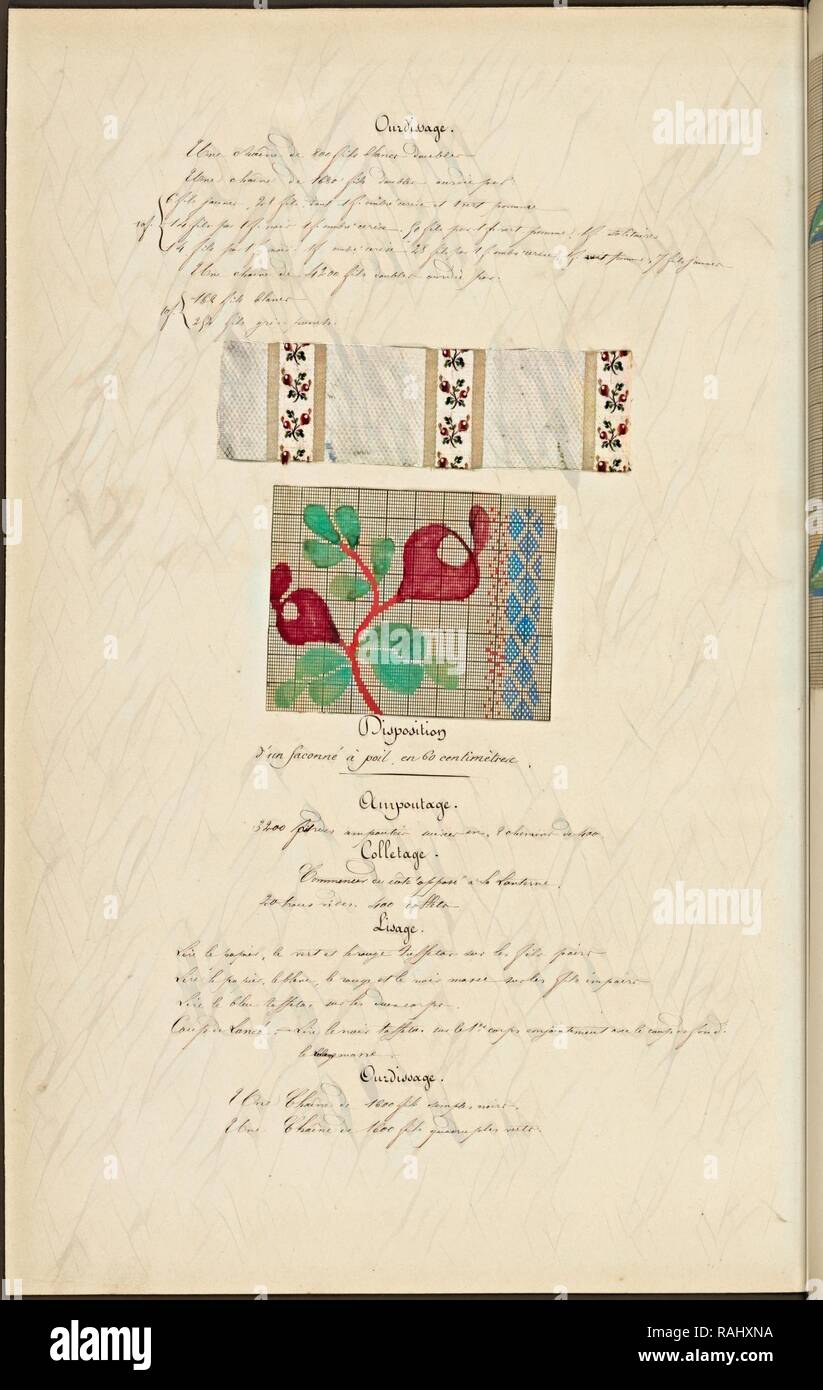 Ourdissage.
Une chaîne de 800 fils blancs doubles
Une chaîne de 1680 fils doubles ourdie par
6 fils jaunes, 28 fils 1 f. ombré cerise et vert pomme
14 fils par 1 f. noir 1 f. ombré cerise 50 fils par 1 f. vert pomme, 1 f.
14 fils par 1 f. noir 1 f. ombré cerise 28 fils par 1 f. ombré cerise, 1 f. vert pomme, 7 fils jaunes
Une chaîne de 4200 fils doubles ourdie par.
168 fils blancs
252 fils gris
Disposition
d'un façonné à poil, en 60 centimètres.
Ampoutage.
3200 suivies en 8 chemins de 400
Colletage.
Commencer du côté opposé à la Lanterne.
20 trous vides. 400 collets
Lisage.
Lire le papier, le vert et le rouge taffetas sur les fils pairs
Lire le papier, le blanc, le rouge et le noir masse sur les fils impairs
Lire le bleu taffetas sur les deux corps.
Coup de Lancé = Lire le noir taffetas sur le 1er corps conjointement avec le coup de fond.
le masse
Ourdissage.
Une Chaîne de 1600 fils simples noirs.
Une Chaîne de 1600 fils quadruples verts.
alamy
alamy stock photo
RAHXNA
www.alamy.com